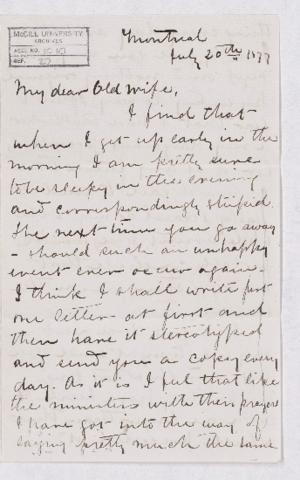 McGILL UNIVERSITY
ARCHIVES
ACC. NO.
REF.
Montreal
July 20th 1877
My dear Old Wife,
I find that
when I get up early in the
morning I am pretty sure
to be sleepy in the evening
and correspondingly stupid.
The next time you go away
- should such an unhappy
event ever occur again -
I think I shall write just
one letter at first and
then have it stereotyped
and send you a copy every
day. As it is I feel that like
the ministers with their prayers
I have got into the way of
saying pretty much the same